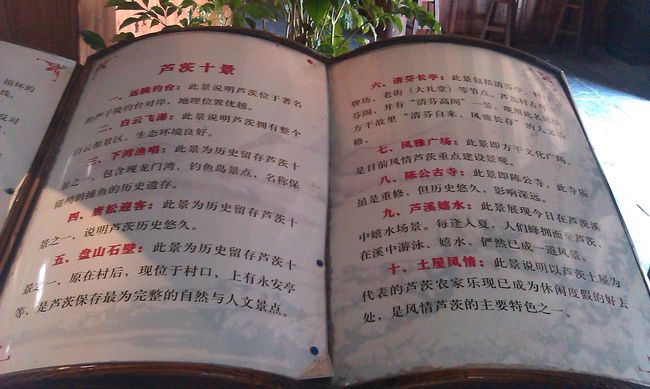 芦茨十景
一、远眺钓台：此景说明芦茨位于著名
的严子陵钓台对岸，地理位置优越。
二、白云飞瀑：此景说明芦茨拥有整个
白云源景区，生态环境良好。
三、下湾渔唱：此景为历史留存芦茨十
景之一，包含现龙门湾、钓鱼岛景点，名称保
留鸬鹚捕鱼的历史遗存。
四、唐松迎客：此景为历史留存芦茨十
景之一，说明芦茨历史悠久。
五、盘山石壁：此景为历史留存芦茨十
景之一，原在村后，现位于村口，上有永安亭
等，是芦茨保存最为完整的自然与人文景点。
六、清芬长亭：此景包括清芬亭、
牌坊、老街（大礼堂）等节点，芦茨村
芬阁，并有“清芬高阁”一景，现用此名
方干故里“清芬自来，风雅长存”的人文
格。
七、风雅广场：此景即方干文化广场，
是目前风情芦茨重点建设景观。
八、陈公古寺：此景即陈公寺，此寺庙
虽是重修，但历史悠久，影响深远。
九、芦溪嬉水：此景展现今日在芦茨溪
中嬉水场景。每逢入夏，人们蜂拥而至芦茨，
在溪中游泳、嬉水，俨然已成一道风景。
十、土屋风情：此景说明以芦茨土屋为
代表的芦茨农家乐现已成为休闲度假的好去
处，是风情芦茨的主要特色之一。
损坏的
线。
反对